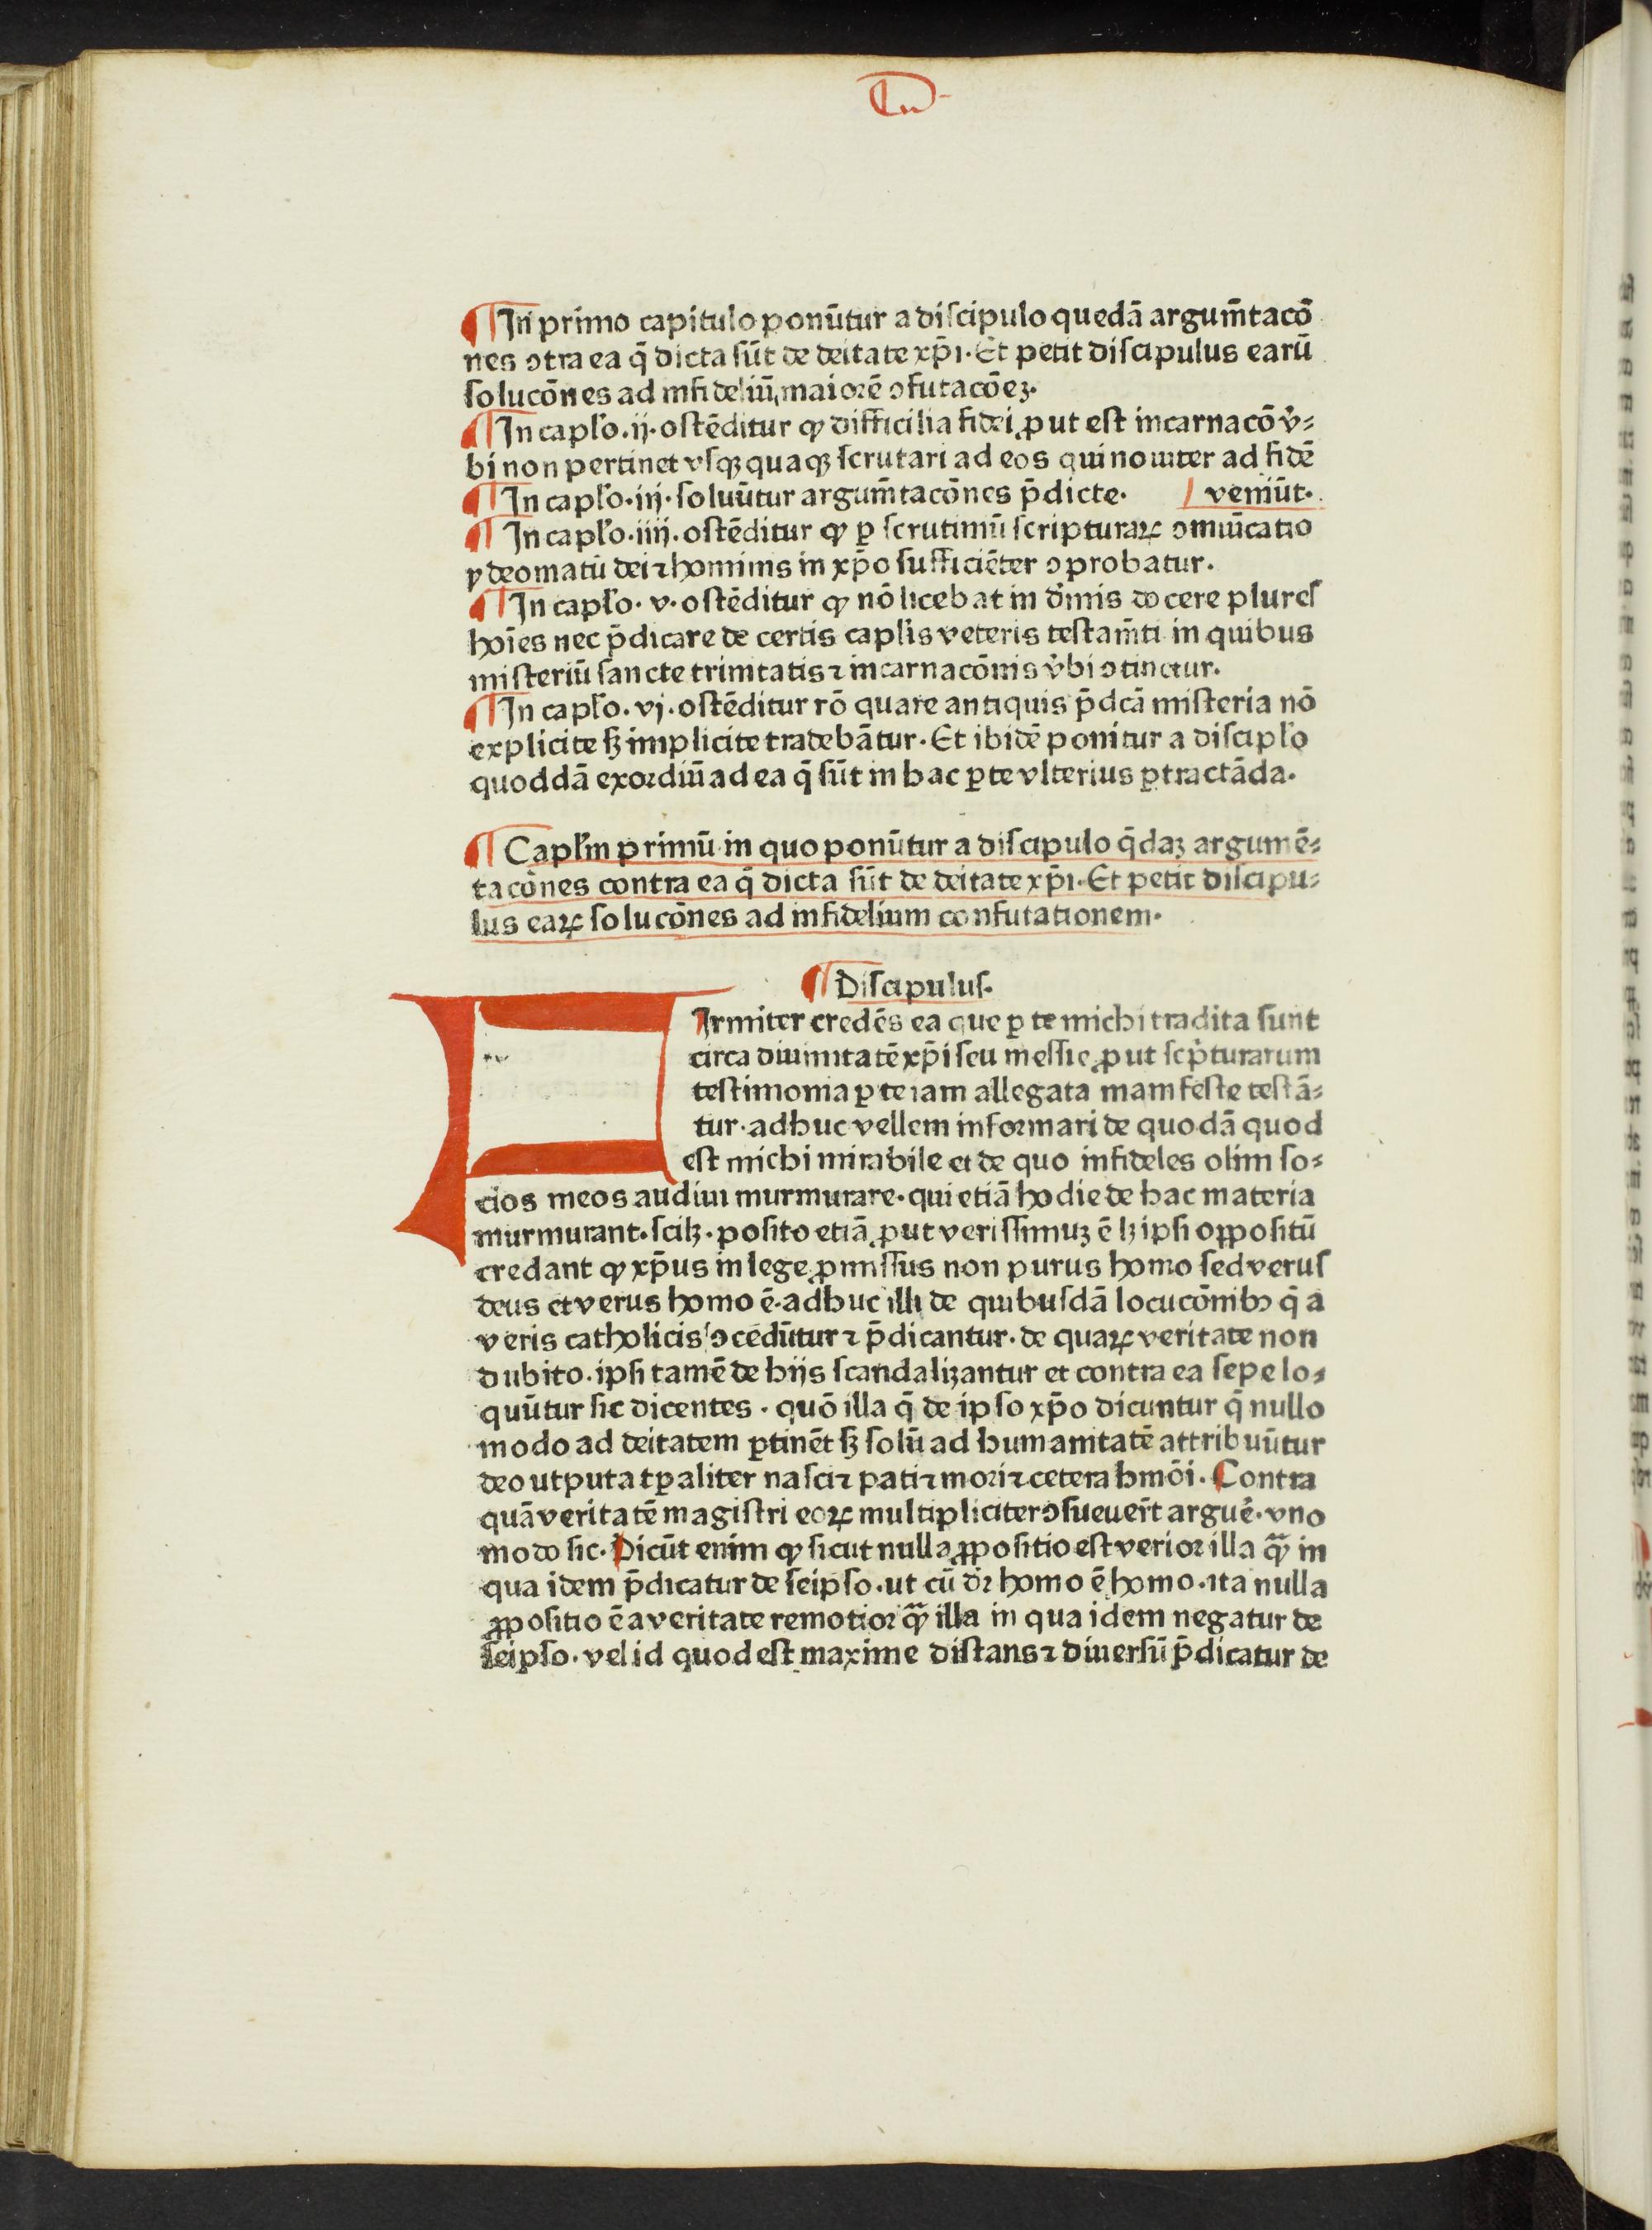 ¶ In primo capitulo ponūtur a diſcipulo quedā argum̄tacō
nes ↄtra ea q̄ dicta ſūt de deitate xp̄i. Et petit diſcipulus earū
ſolucōnes ad infideliū maiorē ↄfutacōeꝫ.
¶ In capl'o .ij. oſtēditur ꝙ difficilia fidei ꝓut eſt incarnacō v̓⸗
bi non pertinet vſqꝫ quaqꝫ ſcrutari ad eos qui nouiter ad fidē
¶ In capl'o .iij. ſoluūtur argum̄tacōnes p̄dicte. veniūt.
¶ In capl'o .iiij. oſtēditur ꝙ ꝑ ſcrutiniū ſcripturaꝝ ↄmūicatio
ydeomatū dei ⁊ hominis in xp̄o ſufficiēter ↄprobatur.
¶ In capl'o. v. oſtēditur ꝙ nō licebat in d̓inis docere plureſ
hōies nec p̄dicare de certis caplis veteris teſtam̄ti in quibus
miſteriū ſancte trinitatis ⁊ incarnacōnis v̓bi ↄtinetur.
¶ In capl'o. vj. oſtēditur rō quare antiquis p̄dcā miſteria nō
explicite ſꝫ implicite tradebātur. Et ibidē ponitur a diſcipl'o
quoddā exordiū ad ea q̄ ſūt in hac ꝑte vlterius ꝑtractāda.
¶ Capl'm primū in quo ponūtur a diſcipulo q̄daꝫ argumē⸗
tacōnes contra ea q̄ dicta ſūt de deitate xp̄i. Et petit diſcipu⸗
lus eaꝝ ſolucōnes ad infidelium confutationem.
¶ Diſcipulus.
FIrmiter credēs ea que ꝑ te michi tradita ſunt
circa diuinitatē xp̄i ſeu meſſie ꝓut ſcp̓turarum
teſtimonia ꝑ te iam allegata manifeſte teſtā⸗
tur. adhuc vellem informari de quodā quod
eſt michi mirabile et de quo infideles olim ſo⸗
cios meos audiui murmurare. qui etiā hodie de hac materia
murmurant. ſcilꝫ. poſito etiā ꝓut veriſſimuꝫ ē lꝫ ipſi oppoſitū
credant ꝙ xp̄us in lege ꝓmiſſus non purus homo ſed veruſ
deus et verus homo ē. adhuc illi de quibuſdā locucōnibꝫ q̄ a
veris catholicis ↄcedūtur ⁊ p̄dicantur. de quaꝝ veritate non
dubito. ipſi tamē de hijs ſcandalizantur et contra ea ſepe lo⸗
quūtur ſic dicentes. quō illa q̄ de ipſo xp̄o dicuntur q̄ nullo
modo ad deitatem ꝑtinēt ſꝫ ſolū ad humanitatē attribuūtur
deo utputa tꝑaliter naſci ⁊ pati ⁊ mori ⁊ cetera hmōi. Contra
quā veritatē magiſtri eoꝝ multipliciter ↄſueuer̄t argue̓. vno
modo ſic. Dicūt enim ꝙ ſicut nulla ꝓpoſitio eſt verior illa qͣꝫ in
qua idem p̄dicatur de ſeipſo. ut cū dr̄ homo ē homo. ita nulla
ꝓpoſitio ē a veritate remotior qͣꝫ illa in qua idem negatur de
ſeipſo. vel id quod eſt maxime diſtans ⁊ diuerſū p̄dicatur de